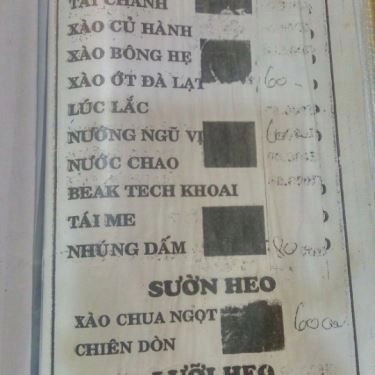 TÁI CHANH
XÀO CỦ HÀNH
XÀO BÔNG HẸ
XÀO ỚT ĐÀ LẠT 60
LÚC LẮC
NƯỚNG NGŨ VỊ
NƯỚC CHAO
BEAK TECH KHOAI
TÁI ME
NHÚNG DẤM 80
SƯỜN HEO
XÀO CHUA NGỌT
CHIÊN DÒN
LƯỠI HEO